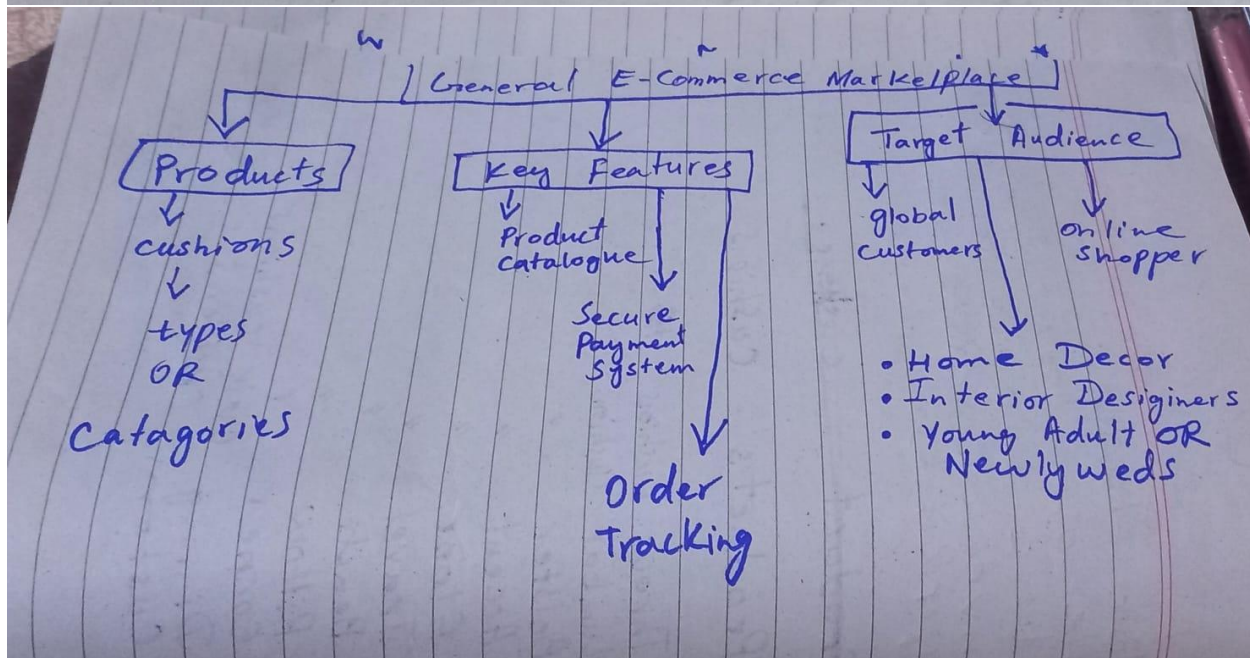 General E-Commerce Marketplace
Products
cushions
types
OR
Catagories
Key Features
Product
Catalogue
Secure
Payment
System
Order
Tracking
Target Audience
global
customers
online
shopper
• Home Decor
• Interior Desiginers
• Young Adult OR
Newly weds